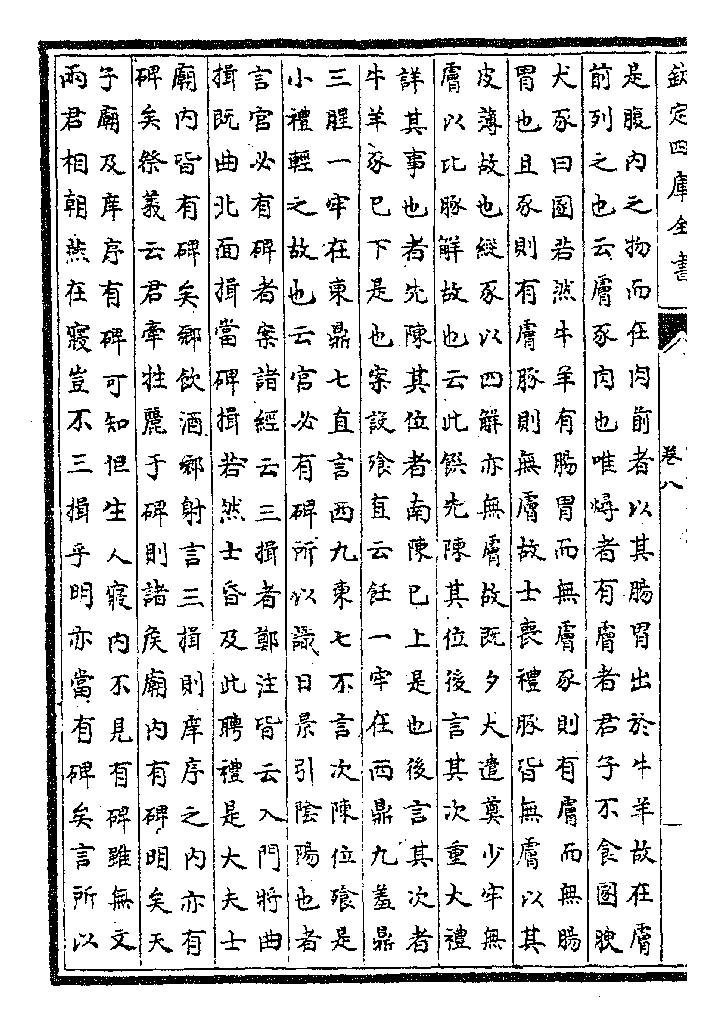 欽定四庫全書
卷八
是腹內之物而在肉前者以其腸胃出於牛羊故在膚
前列之也云膚豕肉也唯燖者有膚者君子不食圂腴
犬豕曰圂若然牛羊有腸胃而無膚豕則有膚而無腸
胃也且豕則有膚豚則無膚故士喪禮豚皆無膚以其
皮薄故也縱豕以四解亦無膚故既夕大遣奠少牢無
膚以比豚解故也云此饌先陳其位後言其次重大禮
詳其事也者先陳其位者南陳已上是也後言其次者
牛羊豕已下是也案設飧直云飪一牢在西鼎九羞鼎
三腥一牢在東鼎七直言西九東七不言次陳位飧是
小禮輕之故也云宮必有碑所以識日景引陰陽也者
言宮必有碑者案諸經云三揖者鄭注皆云入門將曲
揖既曲北面揖當碑揖若然士昏及此聘禮是大夫士
廟內皆有碑矣鄉飲酒鄉射言三揖則庠序之內亦有
碑矣祭義云君牽牲麗于碑則諸侯廟內有碑明矣天
子廟及庠序有碑可知但生人寢內不見有碑雖無文
兩君相朝燕在寢豈不三揖乎明亦當有碑矣言所以